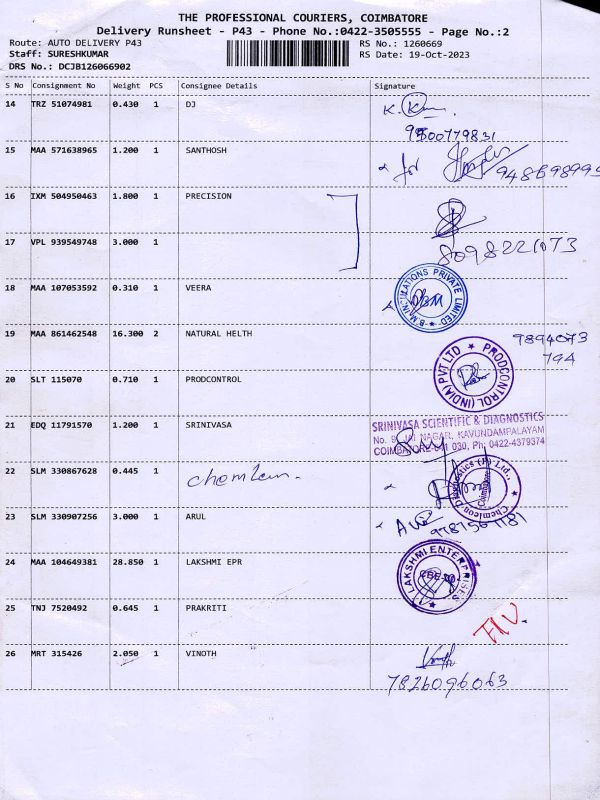 THE PROFESSIONAL COURIERS, COIMBATORE
Delivery Runsheet - P43 - Phone No.:0422-3505555 - Page No.:2
Route: AUTO DELIVERY P43
RS No.: 1260669
Staff: SURESHKUMAR
RS Date: 19-Oct-2023
DRS No.: DCJB126066902
S No Consignment No Weight PCS Consignee Details Signature
14 TRZ 51074981 0.430 1 DJ
15 MAA 571638965 1.200 1 SANTHOSH
for
16 IXM 504950463 1.800 1 PRECISION
17 VPL 939549748 3.000 1
8098221073
18 MAA 107053592 0.310 1 VEERA
PRIVATE LIMITED
19 MAA 861462548 16.300 2 NATURAL HELTH
9894073
794
20 SLT 115070 0.710 1 PRODCONTROL
PRODCONTROL (INDIA) PVT LTD
21 EDQ 11791570 1.200 1 SRINIVASA
SRINIVASA SCIENTIFIC & DIAGNOSTICS
NAGAR, KAVUNDAMPALAYAM
COIMBATORE-641 030, Ph: 0422-4379374
22 SLM 330867628 0.445 1
Chemicon Diagnostics (P) Ltd.,
Coimbatore
23 SLM 330907256 3.000 1 ARUL
24 MAA 104649381 28.850 1 LAKSHMI EPR
LAKSHMI ENTERPRISES
25 TNJ 7520492 0.645 1 PRAKRITI
26 MRT 315426 2.050 1 VINOTH
7826096063